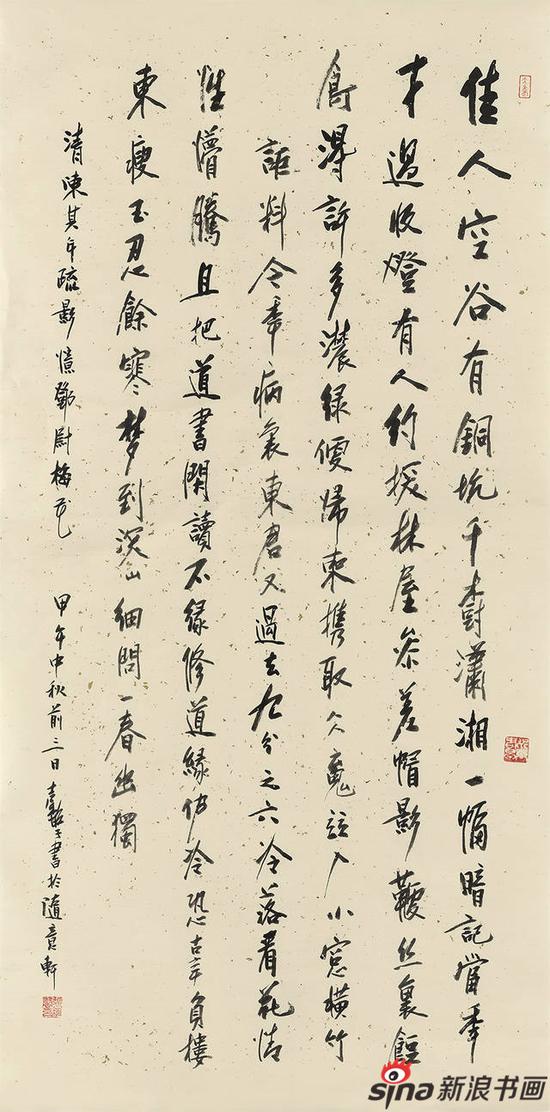 佳人空谷有銅坑千樹瀟湘一幅暗記當年
才過收燈有人約援林屋參差帽影鞭絲裏飽
得許多濃綠便歸來攜取魂逗入小窗橫竹
詎料今年病裏東君又過去九分之六冷落看花情
性懵騰且把道書閑讀不緣修道緣冷恐辜負樓
東瘦玉忍餘寒夢到深山細問一春幽獨
清陳其年疏影憶鄧尉梅花 甲午中秋前三日書於隨意軒
sina新浪书画